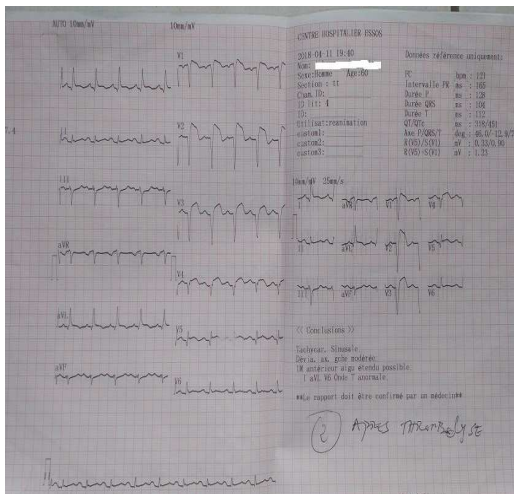 AUTO 10mm/mV
10mm/mV
V1
V2
III
V3
aVR
V4
aVL
V5
aVF
V6
7.4
CENTRE HOSPITALIER ESSOS
2018-04-11 19:40
Nom:
Sexe:Homme Age:60
Section : tt
Cham.ID:
ID lit: 4
ID:
Utilisat:reanimation
custom1:
custom2:
custom3:
Données référence uniquement:
FC bpm : 121
Intervalle PR ms : 165
Durée P ms : 128
Durée QRS ms : 104
Durée T ms : 112
QT/QTc ms : 318/451
Axe P/QRS/T deg :
R(V5)/S(V1) mV : 0.33/0.90
R(V5)+S(V1) mV : 1.23
10mm/mV 25mm/s
I aVR V1 V4
II aVL V2 V5
III aVF V3 V6
<< Conclusions >>
Tachycar. Sinusale
Dévia. ax. gche modérée
IM antérieur aigu étendu possible
I aVL V6 Onde T anormale
**Le rapport doit être confirmé par un médecin**
2 APRES THROMBOLYSE